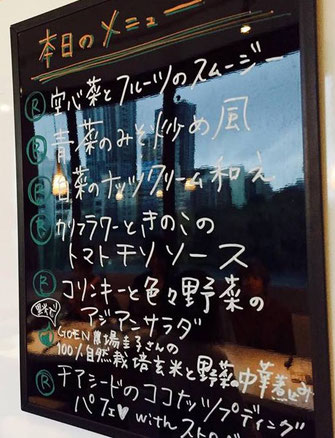 本日のメニュー
R 空心菜とフルーツのスムージー
R 青菜のみそ炒め風
R 白菜のナッツクリーム和え
R カリフラワーときのこの
トマトチリソース
R コリンキーと色々野菜の
アジアンサラダ
GOEN農場圭子さんの
100%自然栽培玄米と野菜の中華
R チアシードのココナッツプディング
パフェ♥ with